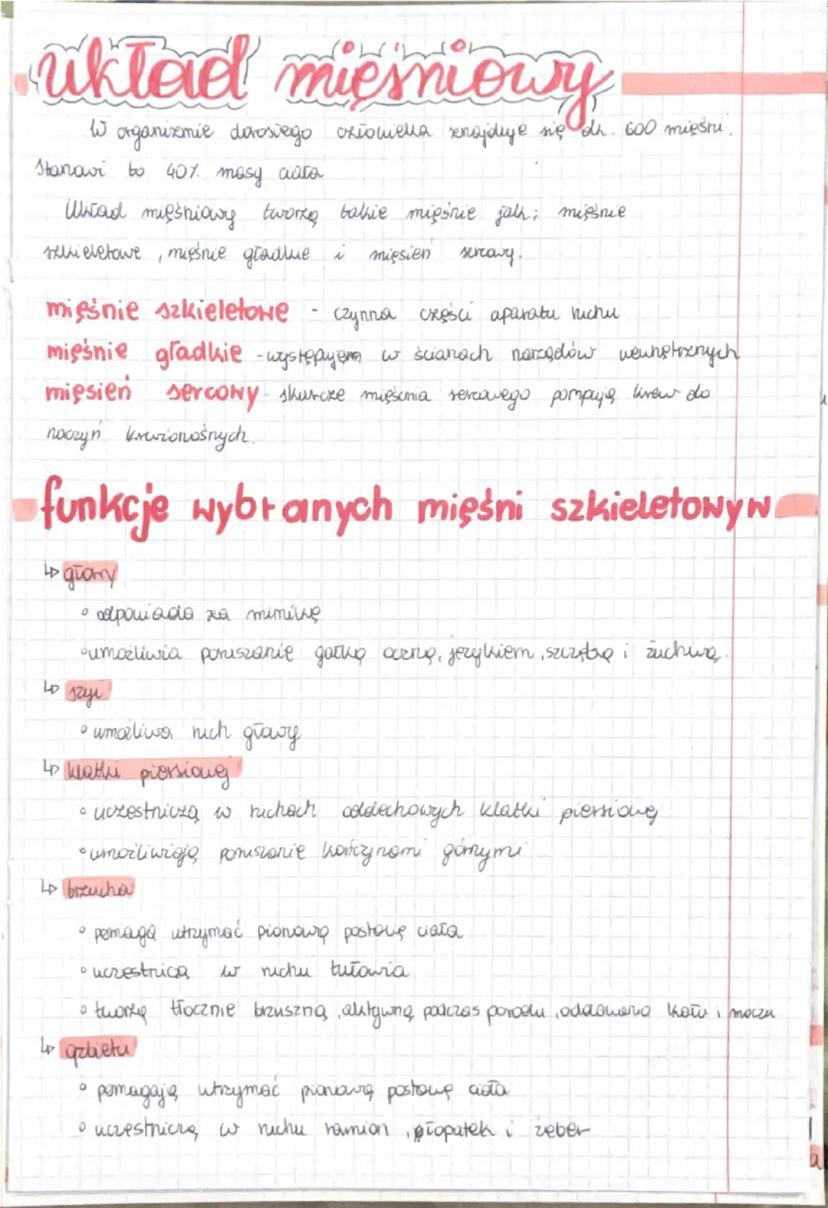 układ mięśniowy
W organizmie dorosłego człowieka znajduje się ok. 600 mięśni.
Stanowi to 40% masy ciała
Układ mięśniowy tworzą takie mięśnie jak; mięśnie
szkieletowe, mięśnie gładkie i mięsień sercowy.
mięśnie szkieletowe - czynna części aparatu ruchu
mięśnie gładkie - występujem w ścianach narządów wewnętrznych
mięsień sercowy - skurcze mięśnia sercowego pompują krew do
naczyń krwionośnych.
funkcje wybranych mięśni szkieletowyw
↳ głowy
° odpowiada za mimikę
° umożliwia poruszanie gałką oczną, językiem, szczęką i żuchwą.
↳ szyi
° umożliwa ruch głowy
↳ klatki piersiowej
° uczestniczą w ruchach oddechowych klatki piersiowej
° umożliwiają poruszanie kończynami górnymi
↳ brzucha
° pomaga utrzymać pionową postawę ciała
° uczestnicą w ruchu tułowia
° tworzą tłocznie brzuszną, aktywną podczas porodu, oddawania kału i moczu
↳ grzbietu
° pomagają utrzymać pionową postawę ciała
° uczestniczą w ruchu ramion, łopatek i żeber